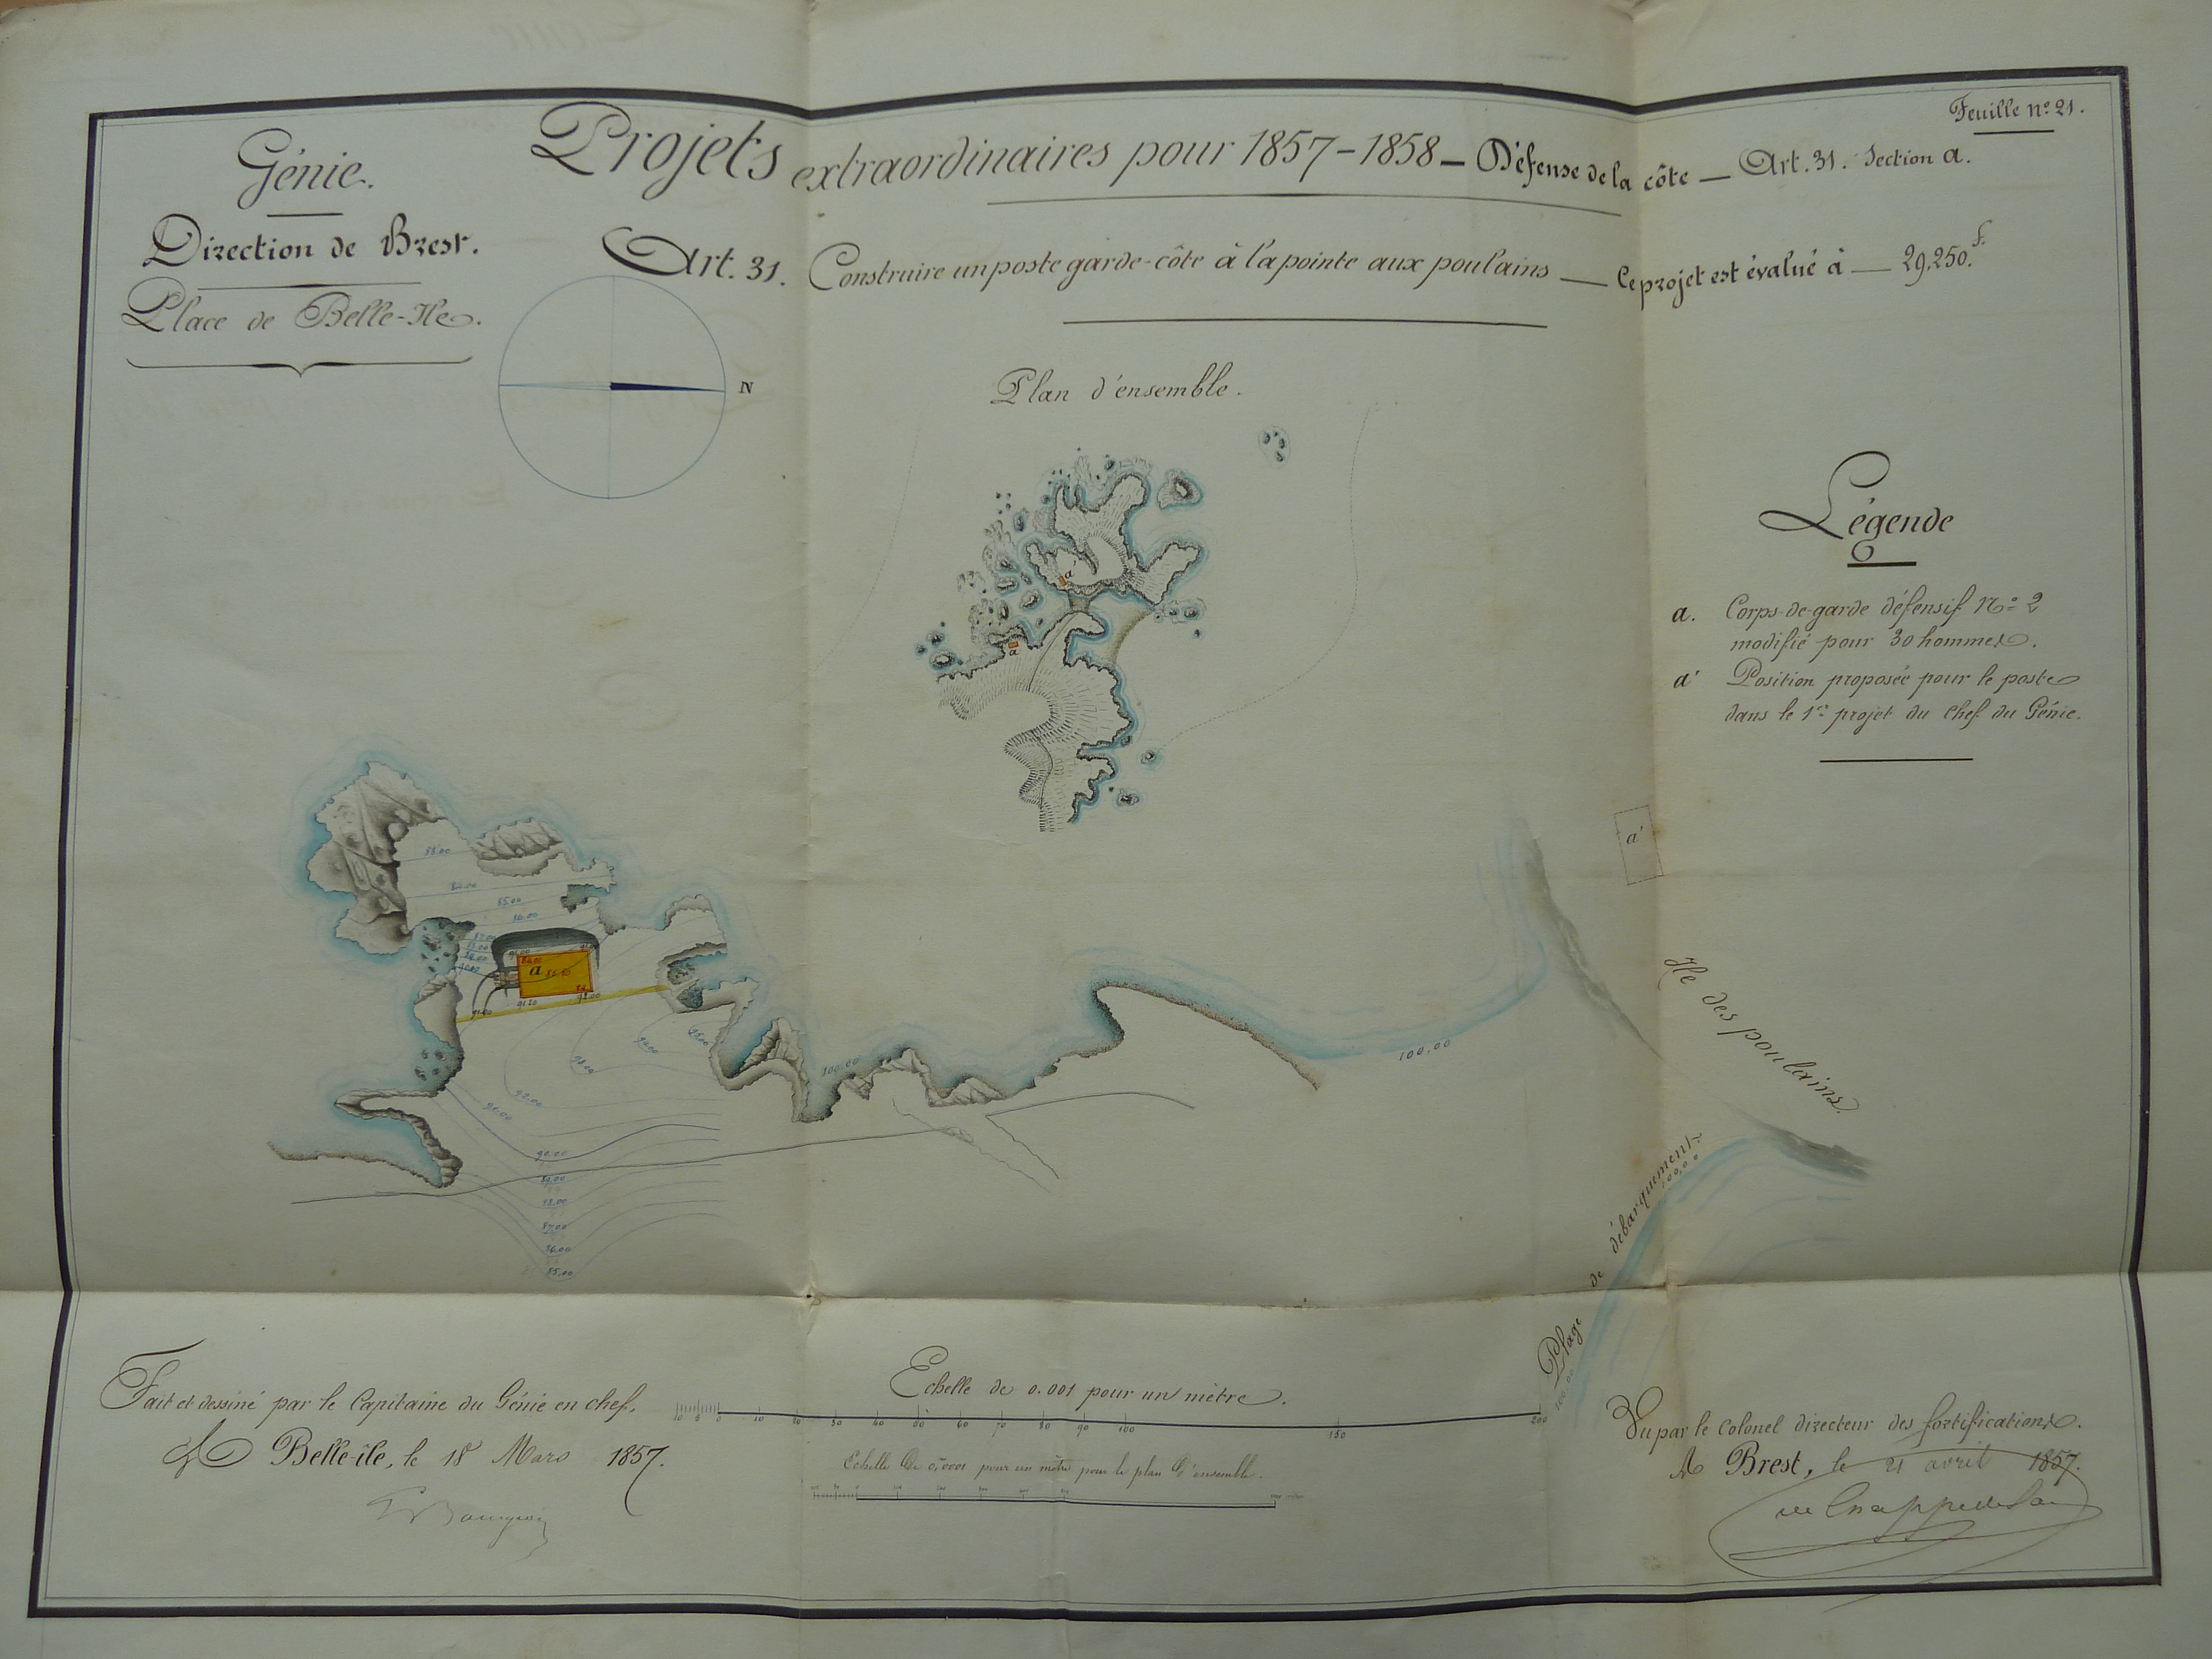 Feuille nº 21.
Génie.
Direction de Brest.
Place de Belle-Ile.
Projets extraordinaires pour 1857-1858 – Défense de la côte — Art. 31. Section a.
Art. 31. Construire un poste garde-côte à la pointe aux poulains — Ce projet est évalué à — 29,250.f
N
Plan d'ensemble.
a'
a
Légende
a. Corps-de-garde défensif Nº 2
modifié pour 30 hommes.
a' Position proposée pour le poste
dans le 1er projet du Chef du Génie.
a'
a
Ile des poulains.
100,00
100,00
Plage de débarquement
100,00
100,00
92.00
91.00
90.00
89.00
88.00
87.00
86.00
85.00
Fait et dessiné par le Capitaine du Génie en chef.
A Belle-île, le 18 Mars 1857.
Echelle de 0.001 pour un mètre.
10 5 0 10 20 30 40 50 60 70 80 90 100 150 200
Echelle de 0,0001 pour un mètre pour le plan d'ensemble.
Vu par le Colonel directeur des fortifications.
A Brest, le 21 avril 1857.